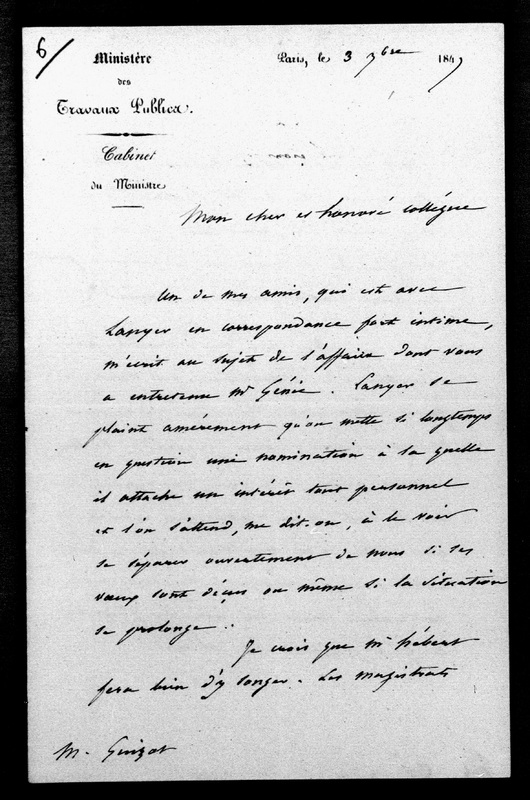 6/
Ministère
des
Travaux Publics.
Cabinet
du Ministre
Paris, le 3 7bre 1847
Mon cher et honoré collégue
Un de mes amis, qui est avec
Lanyer en correspondance fort intime,
m'écrit au sujet de l'affaire dont vous
a entretenu Mr Génie. Lanyer se
plaint amérement qu'on mette si longtemps
en question une nomination à la quelle
il attache un intérêt tout personnel
et l'on s'attend, me dit-on, à le voir
se séparer ouvertement de nous si ses
vœux sont déçus ou même si la situation
se prolonge.
Je crois que Mr hébert
fera bien d'y songer. Les magistrats
M. Guizot